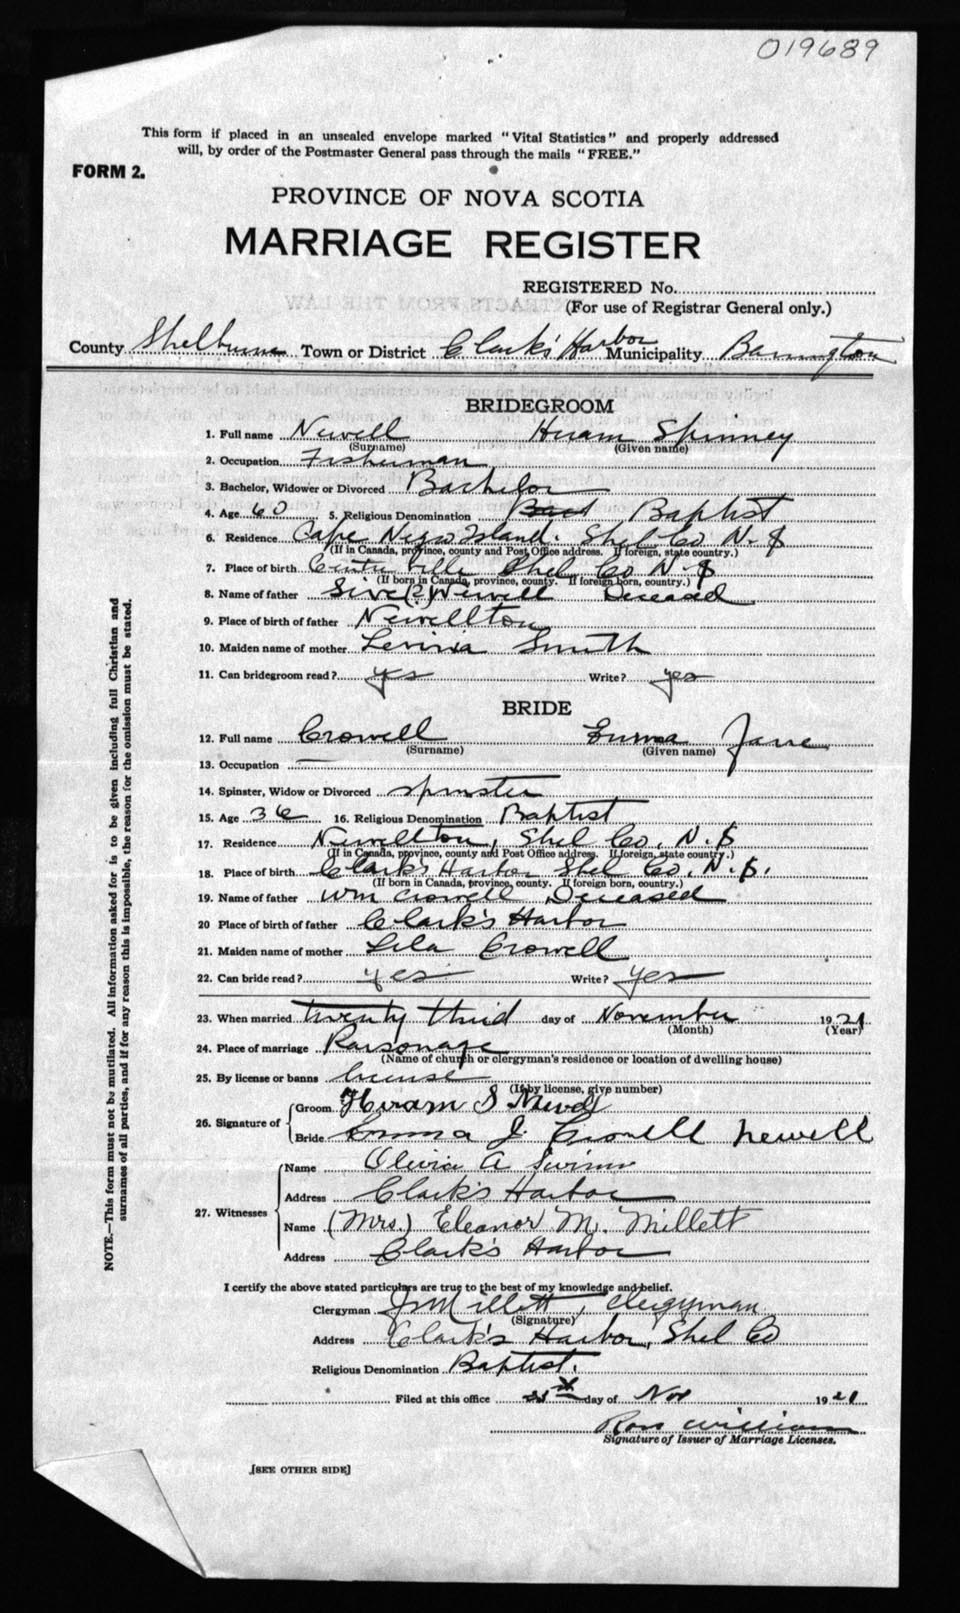 019689
This form if placed in an unsealed envelope marked "Vital Statistics" and properly addressed
will, by order of the Postmaster General pass through the mails "FREE."
FORM 2.
PROVINCE OF NOVA SCOTIA
MARRIAGE REGISTER
REGISTERED No.
(For use of Registrar General only.)
County Shelburne Town or District Clark's Harbor Municipality Barrington
BRIDEGROOM
1. Full name Newell Hiram Spinney
(Surname) (Given name)
2. Occupation Fisherman
3. Bachelor, Widower or Divorced Bachelor
4. Age 60 5. Religious Denomination Baptist
6. Residence Cape Negro Island. Shel Co N.S
(If in Canada, province, county and Post Office address. If foreign, state country.)
7. Place of birth Centreville Shel Co N.S
(If born in Canada, province, county. If foreign born, country.)
8. Name of father (?) Newell Deceased
9. Place of birth of father Newellton
10. Maiden name of mother Smith
11. Can bridegroom read? yes Write? yes
BRIDE
12. Full name Crowell Emma Jane
(Surname) (Given name)
13. Occupation —
14. Spinster, Widow or Divorced spinster
15. Age 36 16. Religious Denomination Baptist
17. Residence Newellton, Shel Co. N.S
(If in Canada, province, county and Post Office address. If foreign, state country.)
18. Place of birth Clark's Harbor Shel Co. N.S.
(If born in Canada, province, county. If foreign born, country.)
19. Name of father Wm Crowell Deceased
20 Place of birth of father Clark's Harbor
21. Maiden name of mother Lila Crowell
22. Can bride read? yes Write? yes
23. When married twenty third day of November 1921
(Month) (Year)
24. Place of marriage Parsonage
(Name of church or clergyman's residence or location of dwelling house)
25. By license or banns license
(If by license, give number)
26. Signature of
Groom Hiram S Newell
Bride Emma J. Crowell Newell
27. Witnesses
Name Olivia A Swim
Address Clark's Harbor
Name (Mrs.) Eleanor M. Millett
Address Clark's Harbor
I certify the above stated particulars are true to the best of my knowledge and belief.
Clergyman Millett, clergyman
(Signature)
Address Clark's Harbor, Shel Co
Religious Denomination Baptist.
Filed at this office day of Nov 1921
Signature of Issuer of Marriage Licenses.
[SEE OTHER SIDE]
NOTE.—This form must not be mutilated. All information asked for is to be given including full Christian and
surnames of all parties, and if for any reason this is impossible, the reason for the omission must be stated.